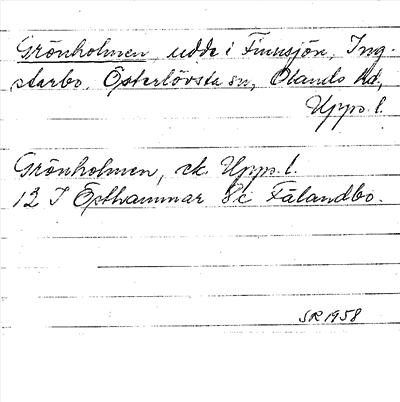 Grönholmen, udde i Finnsjön, Ing-
starbo, Österlövsta sn, Olands hd,
Upps. l.
Grönholmen, ek. Upps. l.
12 I Östhammar 8c Fälandbo.
SR 1958